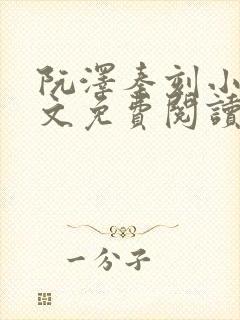 阮澤秦刻小
文免費閱讀
一分子